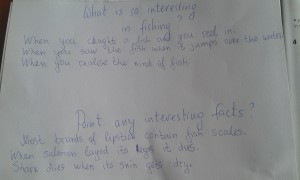 What is so interesting
in fishing?
When you caught a fish and you reel in!
When you saw the fish when it jumps over the water
When you realise the kind of fish
Point any interesting facts?
Most brands of lipstick contain fish scales.
When salmon layed its egg it dies.
Shark dies when its skin gets dry.